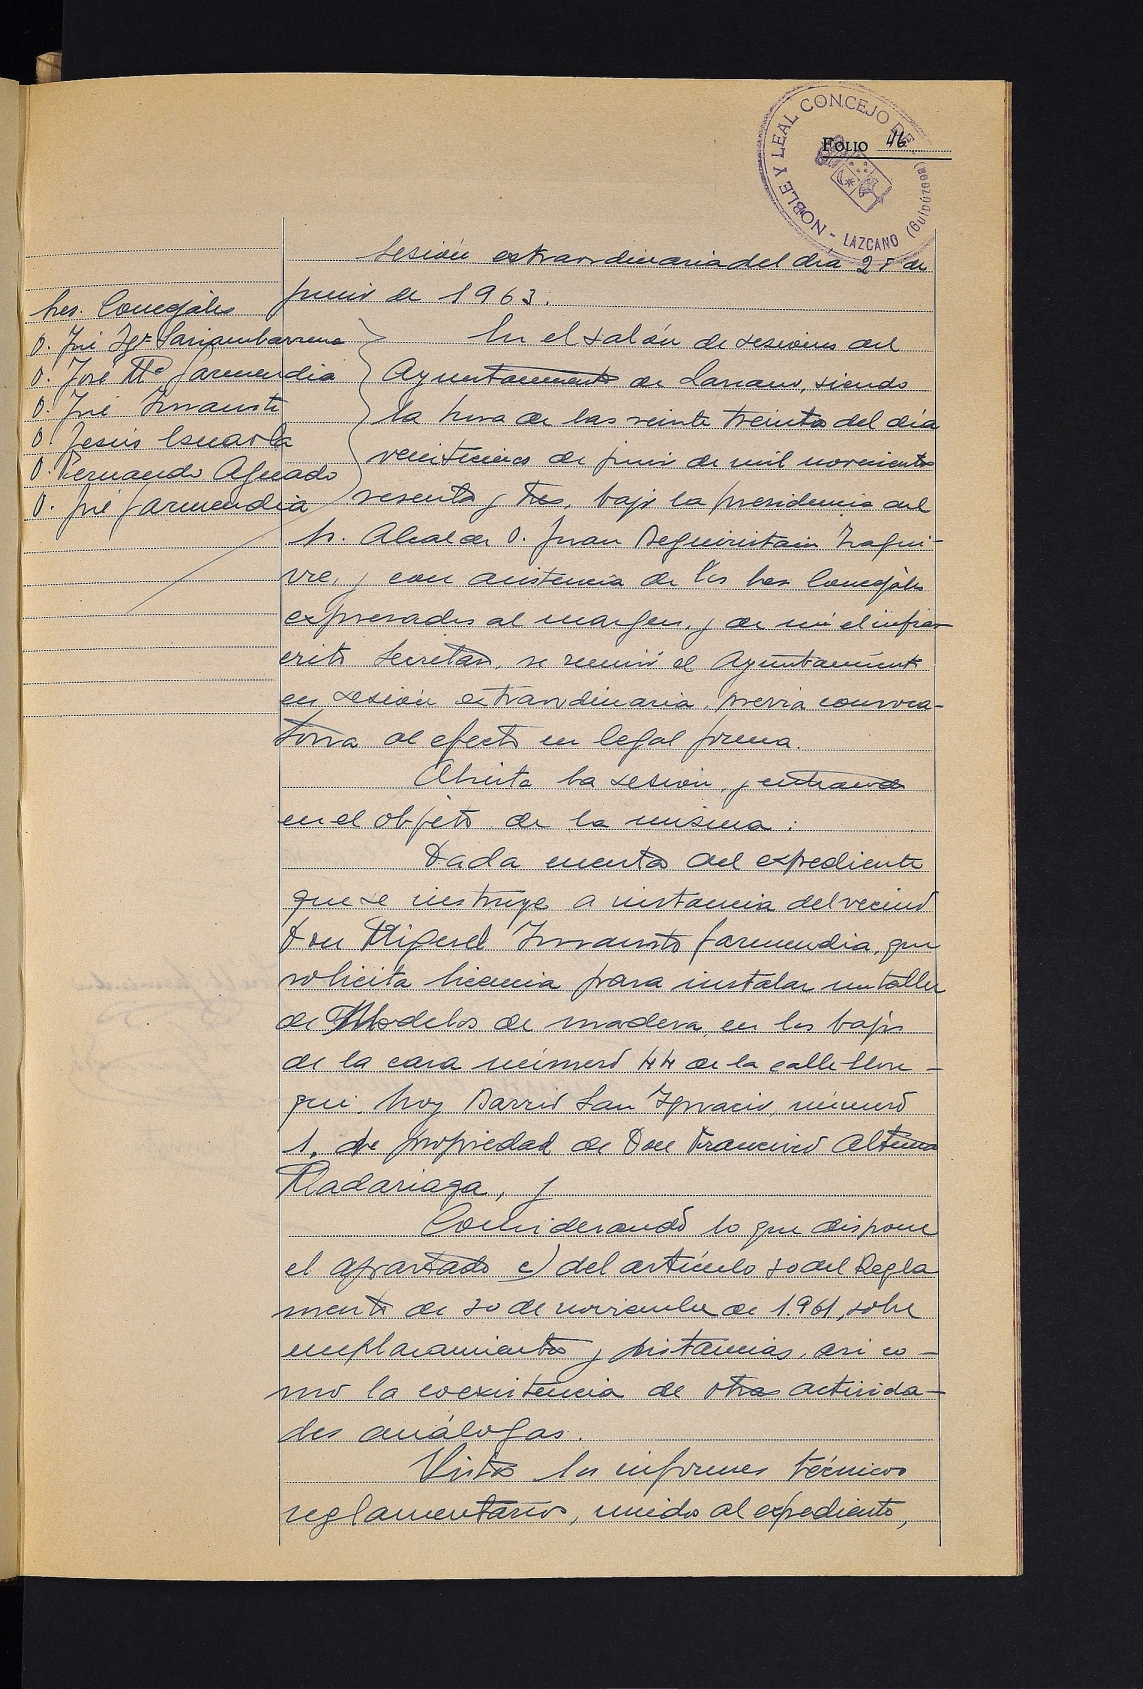 NOBLE Y LEAL CONCEJO DE - LAZCANO (Guipúzcoa)
FOLIO 46
Sesión extraordinaria del día 25 de
junio de 1963.
Sres. Concejales
D. José Igº
D. José Mª Garmendia
D. José Insausti
D. Jesús Esnaola
D. Fernando Aguado
D. José Garmendia
En el salón de sesiones del
Ayuntamiento de Lazcano, siendo
la hora de las veinte treinta del día
veinticinco de junio de mil novecientos
sesenta y tres, bajo la presidencia del
Sr. Alcalde D. Juan Beguiristain Izagui-
rre, y con asistencia de los Sres Concejales
expresados al margen, y de mi el infras-
crito Secretario, se reunió el Ayuntamiento
en sesión extraordinaria, previa convoca-
toria al efecto en legal forma.
Abierta la sesión, y entrando
en el objeto de la misma:
Dada cuenta del expediente
que se instruye a instancia del vecino
Don Miguel Insausti Garmendia, que
solicita licencia para instalar un taller
de Modelos de madera, en los bajos
de la casa número 44 de la calle
hoy Barrio San Ignacio, número
1, de propiedad de Don Francisco Altuna
Madariaga, y
Considerando lo que dispone
el apartado c) del artículo 30 del Regla
mento de 30 de noviembre de 1.961, sobre
emplazamiento y distancias, asi co-
mo la coexistencia de otras activida-
des análogas.
Vistos los informes técnicos
reglamentarios, unidos al expediente,